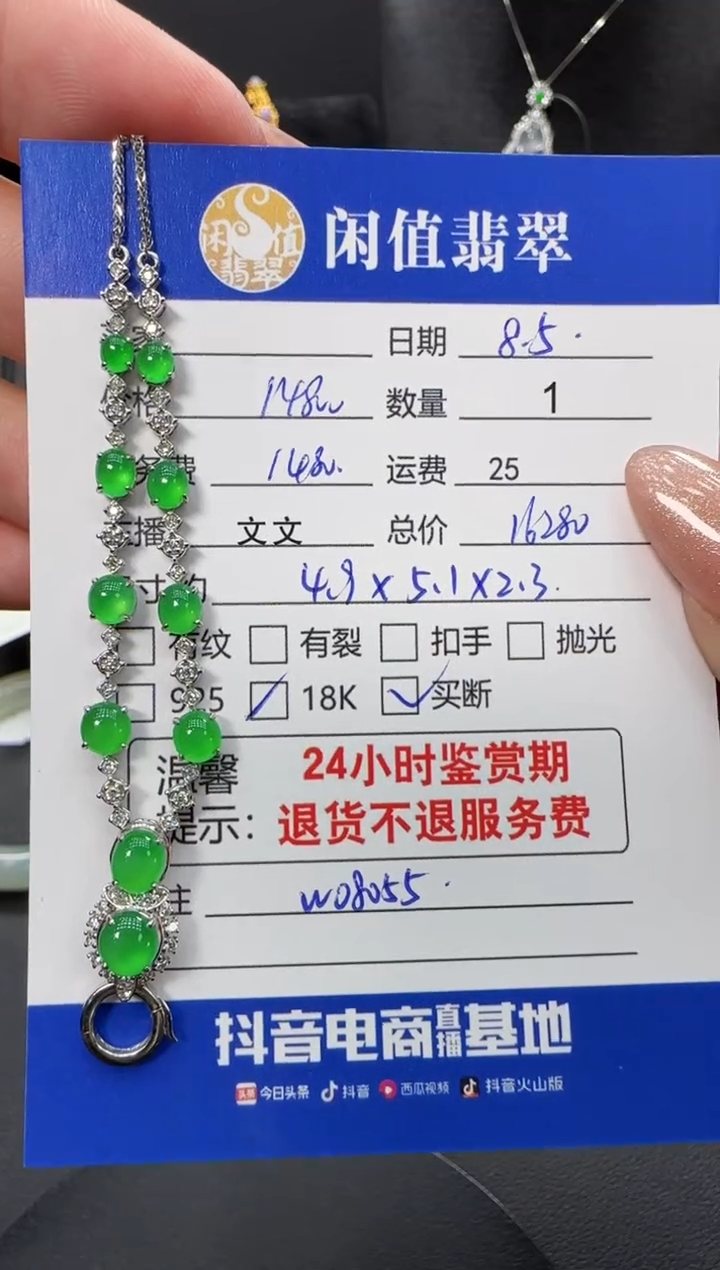 闲值翡翠
闲值翡翠
日期 8.5.
价格 14800 数量 1
务费 1480. 运费 25
主播 文文 总价 16280
寸约 4.9×5.1×2.3.
有纹 有裂 扣手 抛光
925 18K 买断
温馨 24小时鉴赏期
提示：退货不退服务费
注 W08055.
抖音电商直播基地
头条 今日头条 抖音 西瓜视频 抖音火山版